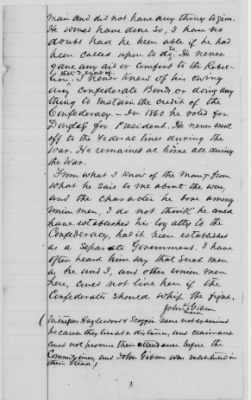 man and did not have any thing to give.
He would have done so, I have no
doubts had he been able if he had
been called upon to do so. He never
gave any aid or comfort to the Rebel-
lion, that I know of. I never knew of his owing
any confederate Bonds or doing any
thing to sustain the credit of the
Confederacy. — In 1860 he voted for
Douglas for President. He never went
off to the Federal lines during the
war. He remained at home all during
the War.
From what I know of the man & from
what he said to me about the war,
and the character he bore among
union men, I do not think he could
have established his loyalty to the
Confederacy, had it been established
as a Separate Government. I have
often heard him say that such men
as he and I, and other union men
here, could not live here if the
Confederates should whip the fight.
John Gibson
(Witnesses Hazlewood & Scoggin were not examined
because they lived at a distance, and claimant
could not procure their attendance before the
Commissioner, and John Gibson was substituted in
their stead)